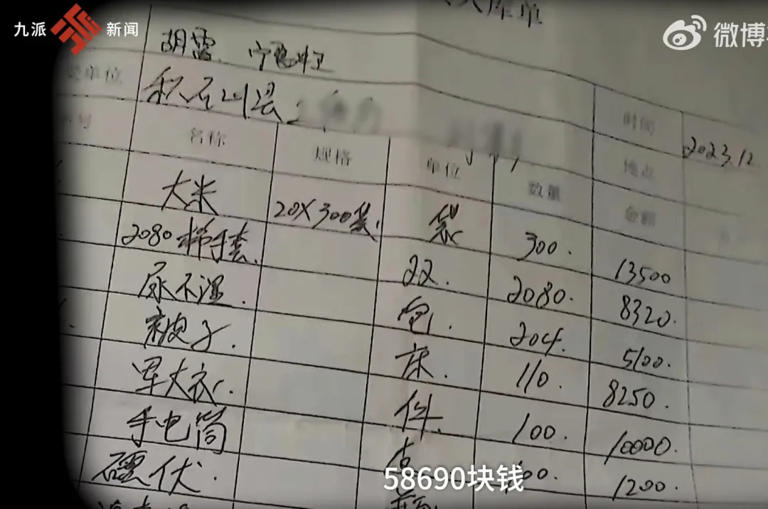 九派 新闻
微博
库单
胡雷 宁
单位 积石山县 时间 2023.12
号 名称 规格 单位 数量 地点
金额
大米 20X300袋 袋 300. 13500
2080棉手套 双 2080. 8320.
尿不湿. 包. 204. 5100.
被子. 床. 110. 8250.
军大衣. 件. 100. 10000.
手电筒 00. 1200.
58690块钱